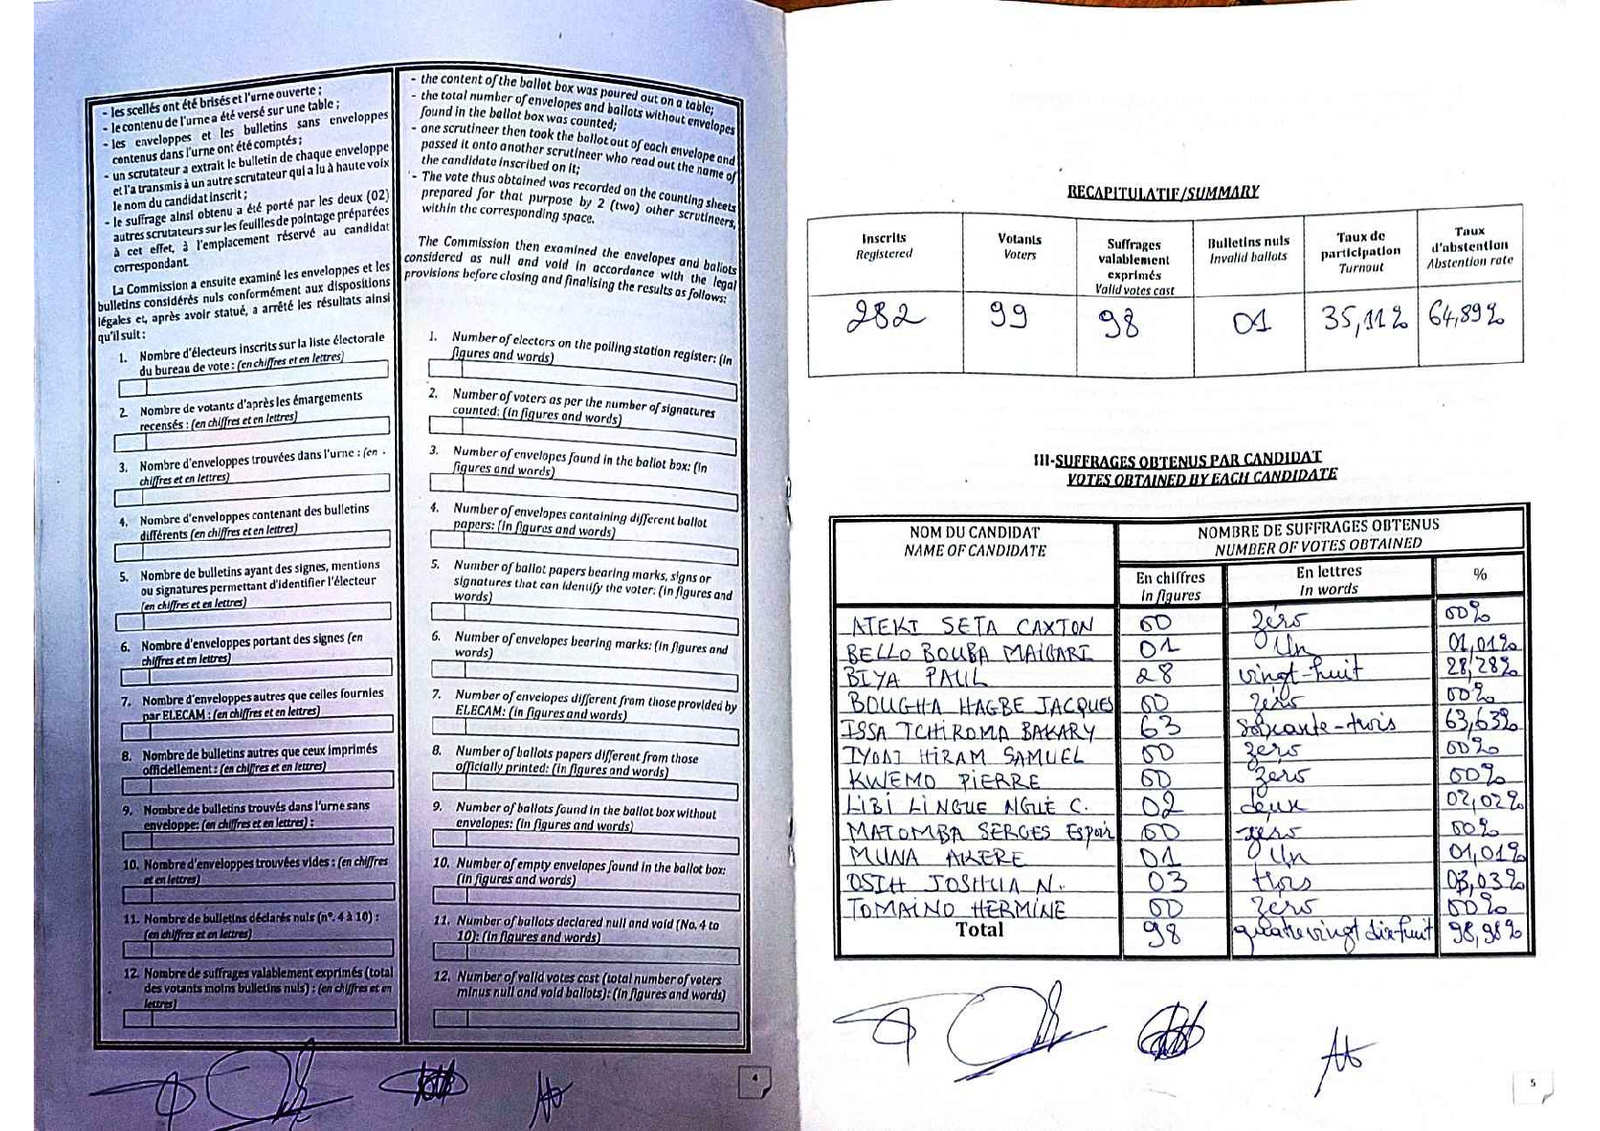 - les scellés ont été brisés et l'urne ouverte ;
- le contenu de l'urne a été versé sur une table ;
- les enveloppes et les bulletins sans enveloppes
contenus dans l'urne ont été comptés ;
- un scrutateur a extrait le bulletin de chaque enveloppe
et l'a transmis à un autre scrutateur qui a lu à haute voix
le nom du candidat inscrit ;
- le suffrage ainsi obtenu a été porté par les deux (02)
autres scrutateurs sur les feuilles de pointage préparées
à cet effet, à l'emplacement réservé au candidat
correspondant.
La Commission a ensuite examiné les enveloppes et les
bulletins considérés nuls conformément aux dispositions
légales et, après avoir statué, a arrêté les résultats ainsi
qu'il suit :
1. Nombre d'électeurs inscrits sur la liste électorale
du bureau de vote : (en chiffres et en lettres)
2. Nombre de votants d'après les émargements
recensés : (en chiffres et en lettres)
3. Nombre d'enveloppes trouvées dans l'urne : (en
chiffres et en lettres)
4. Nombre d'enveloppes contenant des bulletins
différents (en chiffres et en lettres)
5. Nombre de bulletins ayant des signes, mentions
ou signatures permettant d'identifier l'électeur
(en chiffres et en lettres)
6. Nombre d'enveloppes portant des signes (en
chiffres et en lettres)
7. Nombre d'enveloppes autres que celles fournies
par ELECAM : (en chiffres et en lettres)
8. Nombre de bulletins autres que ceux imprimés
officiellement : (en chiffres et en lettres)
9. Nombre de bulletins trouvés dans l'urne sans
enveloppe: (en chiffres et en lettres) :
10. Nombre d'enveloppes trouvées vides : (en chiffres
et en lettres)
11. Nombre de bulletins déclarés nuls (n°. 4 à 10) :
(en chiffres et en lettres)
12. Nombre de suffrages valablement exprimés (total
des votants moins bulletins nuls) : (en chiffres et en
lettres)
- the content of the ballot box was poured out on a table;
- the total number of envelopes and ballots without envelopes
found in the ballot box was counted;
- one scrutineer then took the ballot out of each envelope and
passed it onto another scrutineer who read out the name of
the candidate inscribed on it;
- The vote thus obtained was recorded on the counting sheets
prepared for that purpose by 2 (two) other scrutineers,
within the corresponding space.
The Commission then examined the envelopes and ballots
considered as null and void in accordance with the legal
provisions before closing and finalising the results as follows:
1. Number of electors on the polling station register: (in
figures and words)
2. Number of voters as per the number of signatures
counted: (in figures and words)
3. Number of envelopes found in the ballot box: (in
figures and words)
4. Number of envelopes containing different ballot
papers: (in figures and words)
5. Number of ballot papers bearing marks, signs or
signatures that can identify the voter: (in figures and
words)
6. Number of envelopes bearing marks: (in figures and
words)
7. Number of envelopes different from those provided by
ELECAM: (in figures and words)
8. Number of ballots papers different from those
officially printed: (in figures and words)
9. Number of ballots found in the ballot box without
envelopes: (in figures and words)
10. Number of empty envelopes found in the ballot box:
(in figures and words)
11. Number of ballots declared null and void (No. 4 to
10): (in figures and words)
12. Number of valid votes cast (total number of voters
minus null and void ballots): (in figures and words)
4
RECAPITULATIF/SUMMARY
Inscrits Registered | Votants Voters | Suffrages valablement exprimés Valid votes cast | Bulletins nuls Invalid ballots | Taux de participation Turnout | Taux d'abstention Abstention rate
282 99 98 01 35,11% 64,89%
III-SUFFRAGES OBTENUS PAR CANDIDAT
VOTES OBTAINED BY EACH CANDIDATE
NOM DU CANDIDAT NOMBRE DE SUFFRAGES OBTENUS
NAME OF CANDIDATE NUMBER OF VOTES OBTAINED
En chiffres En lettres %
in figures In words
ATEKI SETA CAXTON 00 zéro 00%
BELLO BOUBA MAIGARI 01 Un 01,01%
BIYA PAUL 28 vingt-huit 28,28%
BOUGHA HAGBE JACQUES 00 zéro 00%
ISSA TCHIROMA BAKARY 63 Soixante-trois 63,63%
IYODI HIRAM SAMUEL 00 zéro 00%
KWEMO PIERRE 00 zéro 00%
LIBI LINGUE NGUE C. 02 deux 02,02%
MATOMBA SERGES Espoir 00 zéro 00%
MUNA AKERE 01 Un 01,01%
OSIH JOSHUA N. 03 trois 03,03%
TOMAINO HERMINE 00 zéro 00%
Total 98 quatre vingt dix-huit 98,98%
5